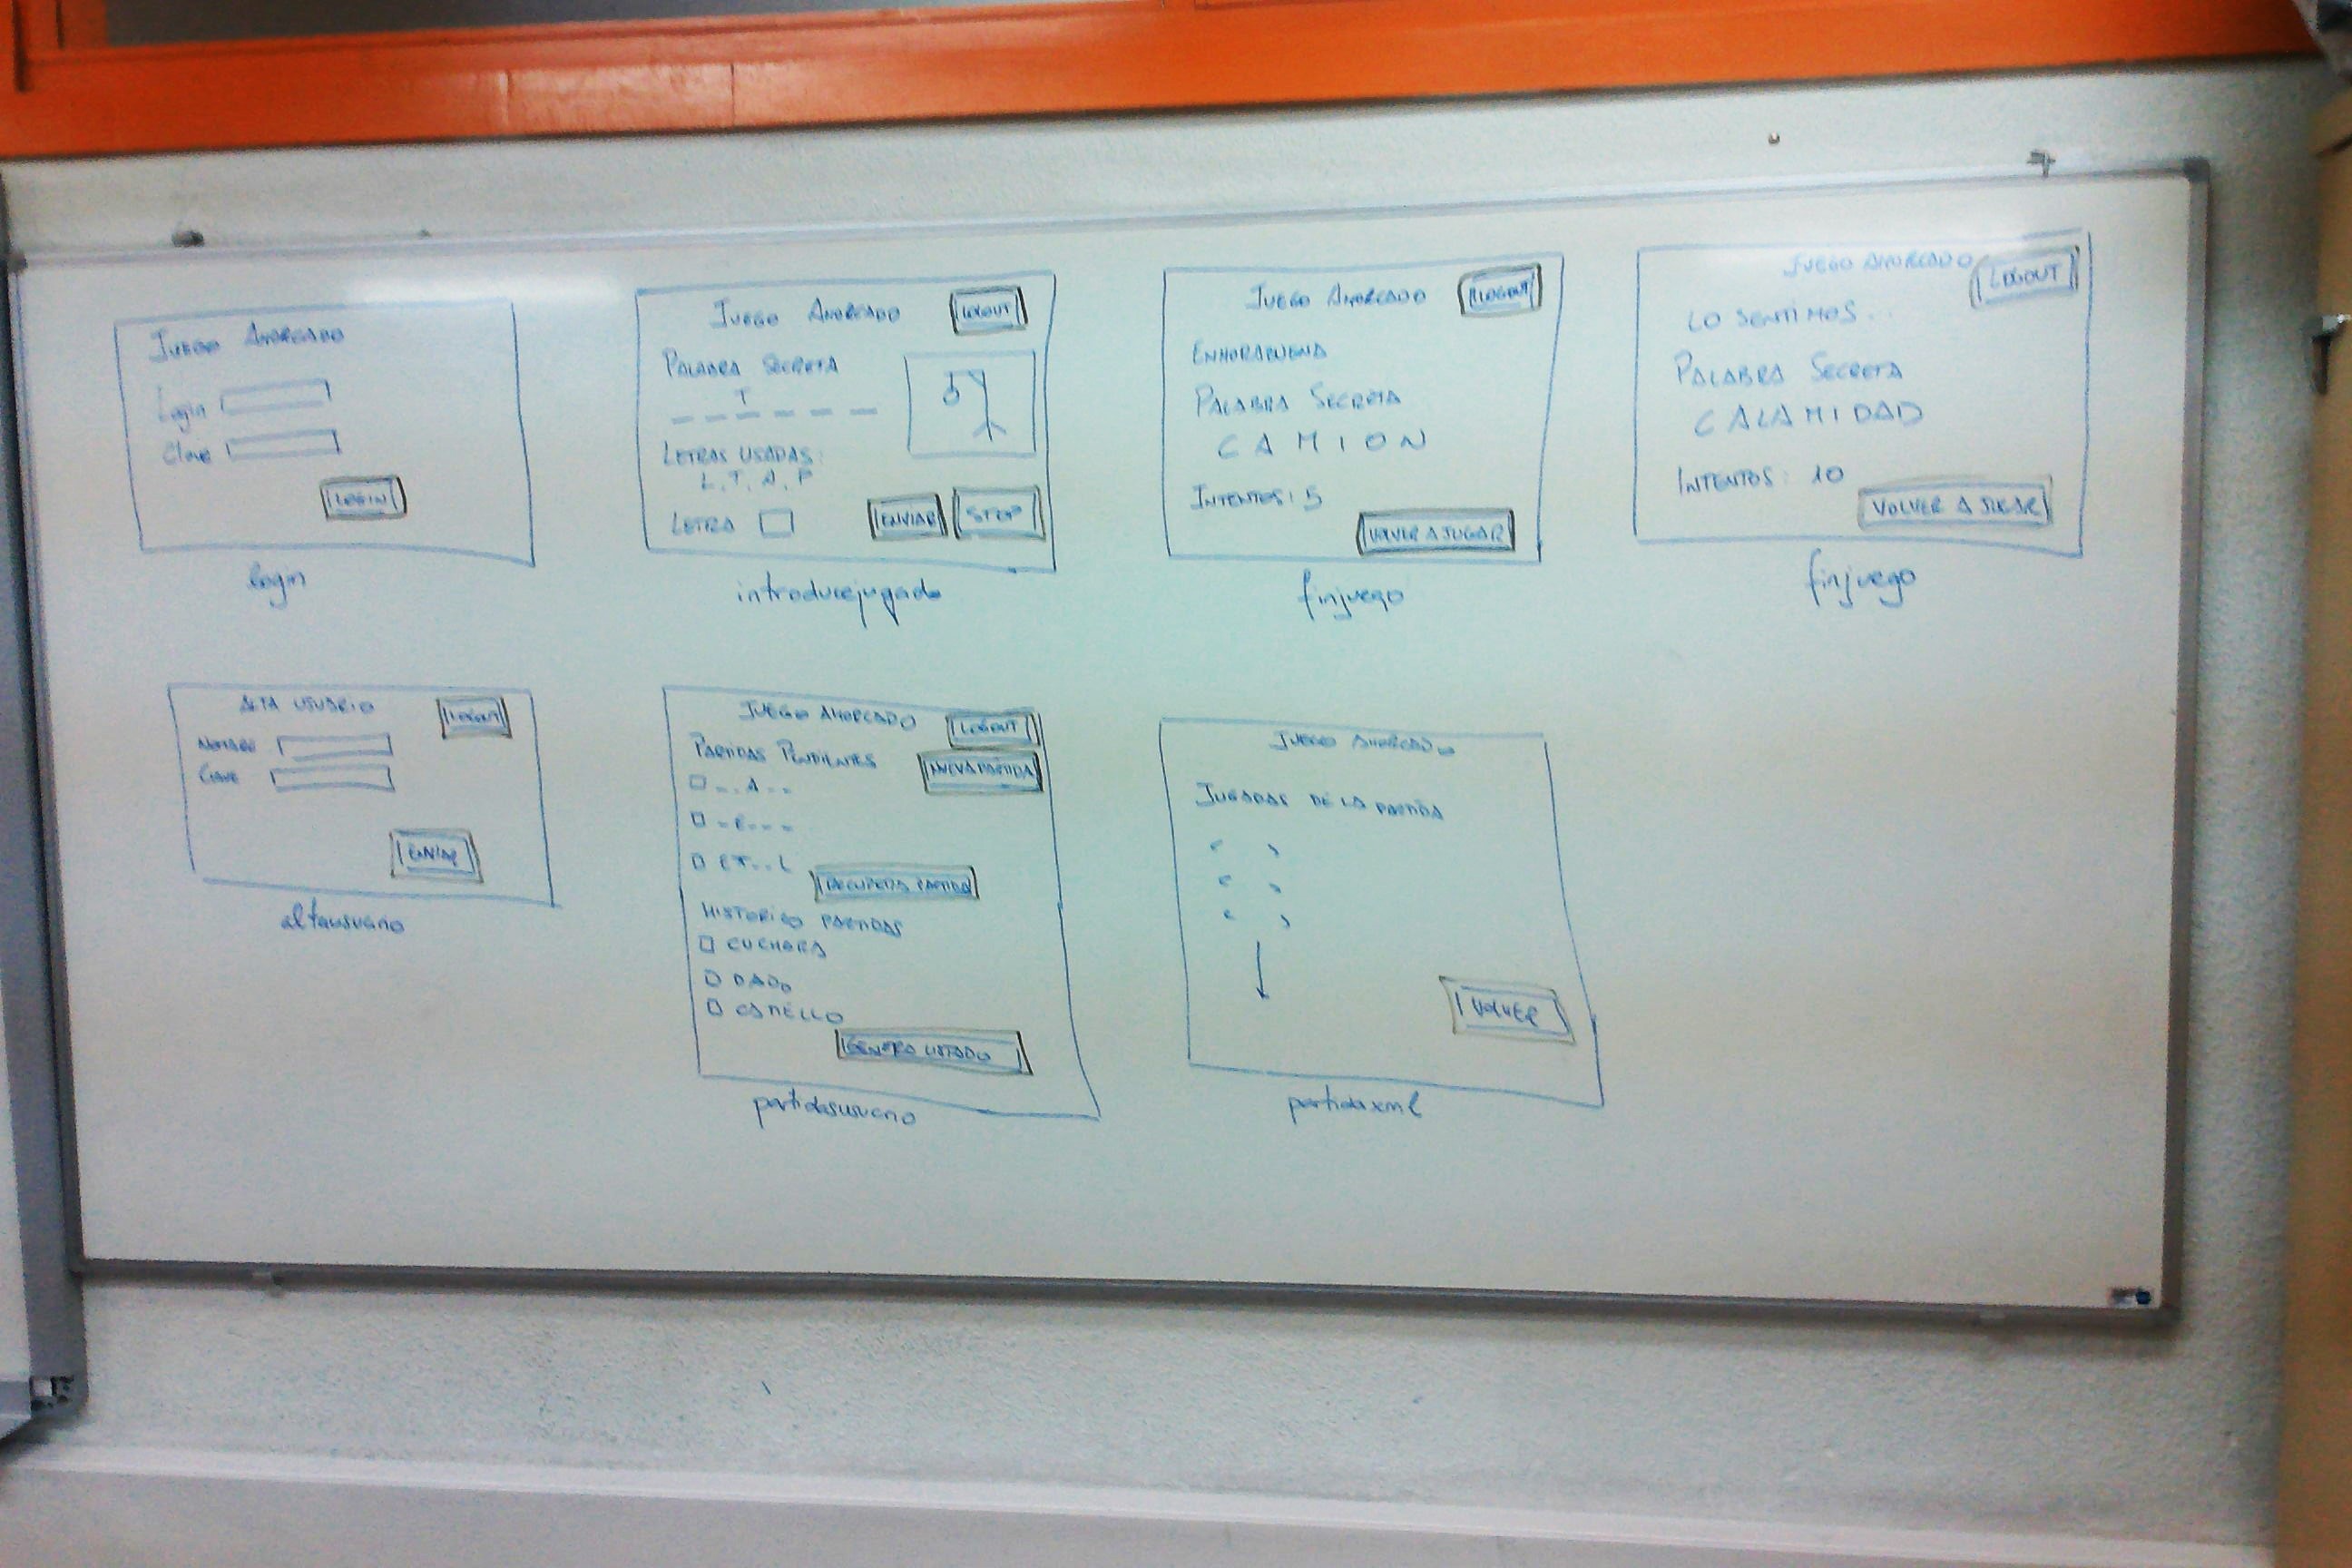 JUEGO AHORCADO
Login
Clave
LOGIN
login
JUEGO AHORCADO
LOGOUT
PALABRA SECRETA
_ _ T _ _ _
LETRAS USADAS:
L, T, A, P
LETRA
ENVIAR
STOP
introducejugada
JUEGO AHORCADO
LOGOUT
ENHORABUENA
PALABRA SECRETA
C A M I O N
INTENTOS: 5
VOLVER A JUGAR
finjuego
JUEGO AHORCADO
LOGOUT
LO SENTIMOS...
PALABRA SECRETA
CALAMIDAD
INTENTOS: 10
VOLVER A JUGAR
finjuego
ALTA USUARIO
LOGOUT
NOMBRE
CLAVE
ENVIAR
altausuario
JUEGO AHORCADO
LOGOUT
PARTIDAS PENDIENTES
NUEVA PARTIDA
_ _ A _ _
_ E _ _ _
RECUPERA PARTIDA
HISTORICO PARTIDAS
CUCHARA
DADO
CAMELLO
GENERA LISTADO
partidasusuario
JUEGO AHORCADO
JUGADAS DE LA PARTIDA
VOLVER
partidaxml